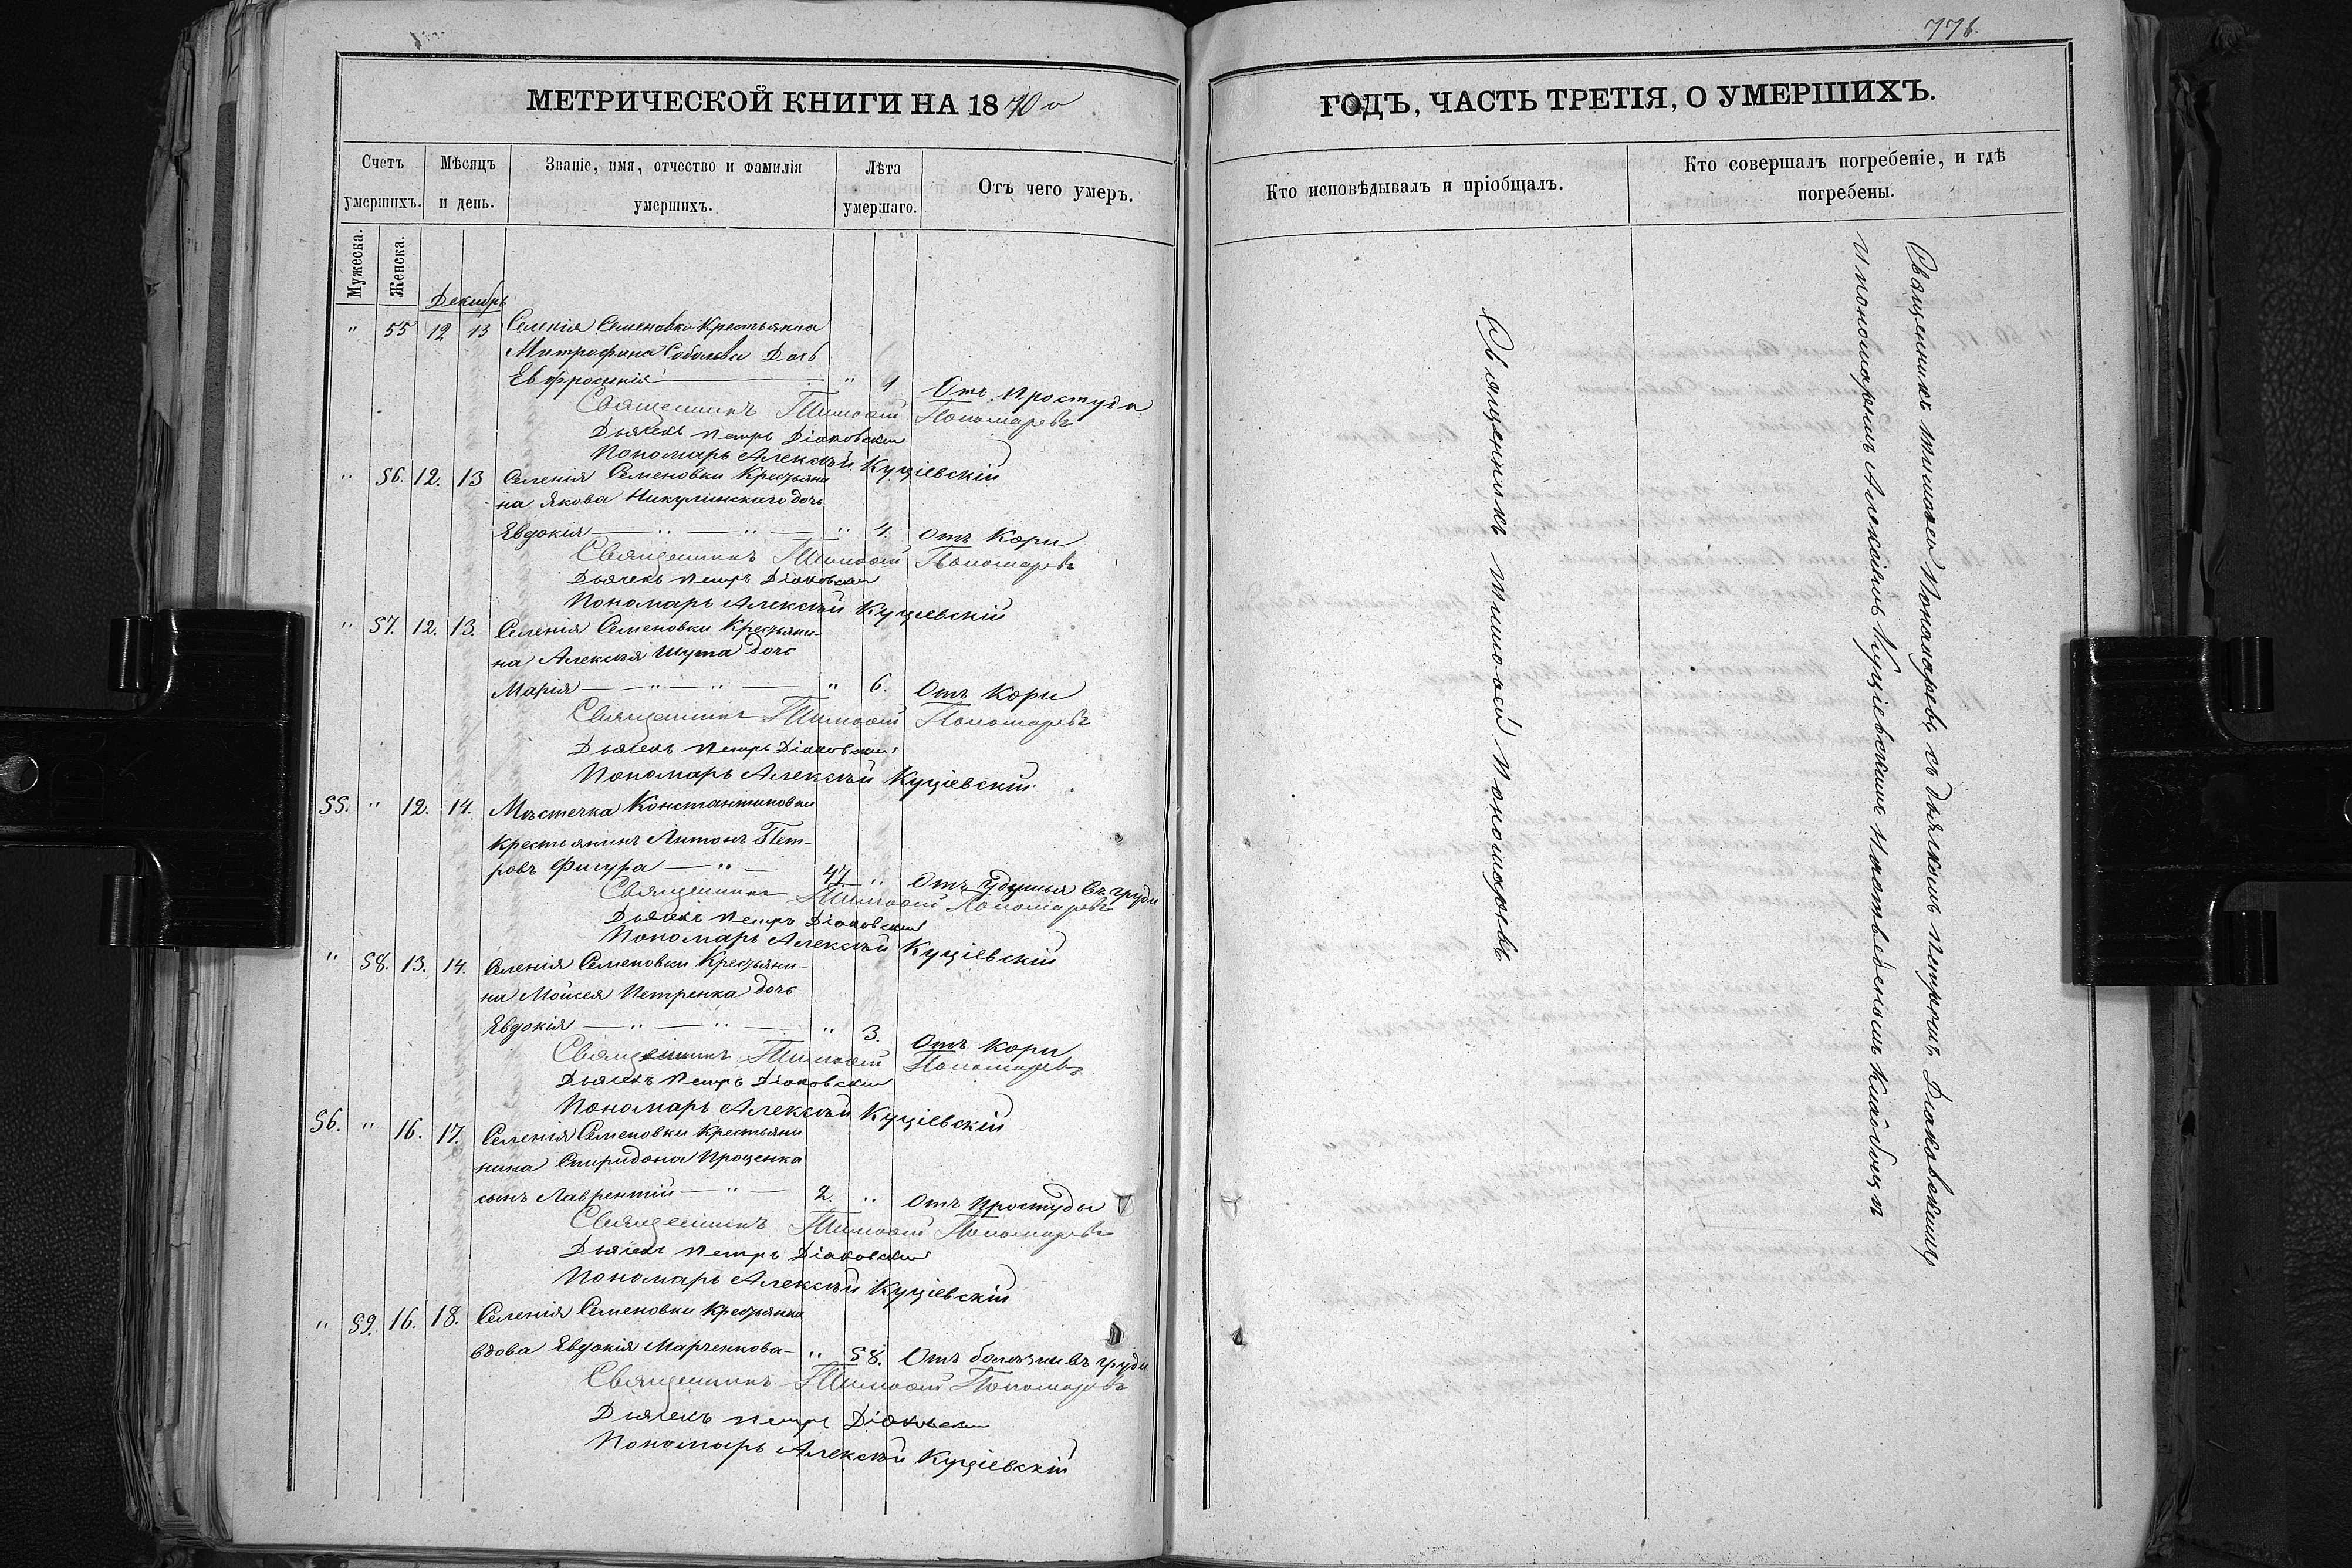 776.
МЕТРИЧЕСКОЙ КНИГИ НА 1870 го
ГОДЪ, ЧАСТЬ ТРЕТІЯ, О УМЕРШИХЪ.
Счетъ умершихъ.
Мѣсяцъ и день.
Званіе, имя, отчество и фамилія умершихъ.
Лѣта умершаго.
Отъ чего умеръ.
Кто исповѣдывалъ и пріобщалъ.
Кто совершалъ погребеніе, и гдѣ погребены.
Мужеска.
Женска.
Декабрь
" 55 12 13 Селенія Семеновки Крестьянина
Митрофана Соболева Дочь
Евфросинія " 4 Отъ простуды
Священникъ Тимофей Пономаревъ
Дьячекъ Петръ Діаковскій
Пономарь Алексѣй Куціевскій
" 56. 12. 13 Селенія Семеновки Крестьяни
на Якова Никулинскаго дочь
Евдокія — " — " — " 4. Отъ Кори
Священникъ Тимофей Пономаревъ
Дьячекъ Петръ Діаковскій
Пономарь Алексѣй Куціевскій
" 57. 12. 13. Селенія Семеновки Крестьяни-
на Алексѣя Шута дочь
Марія — " — " — " 6. Отъ Кори
Священникъ Тимофей Пономаревъ
Дьячекъ Петръ Діаковскій
Пономарь Алексѣй Куціевскій.
55. " 12. 14. Мѣстечка Константиновки
крестьянинъ Антонъ Пет-
ровъ Фигура — " — 47 " Отъ удушья въ груди
Священникъ Тимофей Пономаревъ
Дьячекъ Петръ Діаковскій
Пономарь Алексѣй Куціевскій
" 58. 13. 14. Селенія Семеновки Крестьяни-
на Моисея Петренка дочь
Евдокія — " — " — " 3. Отъ Кори
Священникъ Тимофей Пономаревъ
Дьячекъ Петръ Діаковскій
Пономарь Алексѣй Куціевскій
56. " 16. 17. Селенія Семеновки Крестьяни
нина Спиридона Проценка
сынъ Лаврентій — " — 2. " Отъ простуды
Священникъ Тимофей Пономаревъ
Дьячекъ Петръ Діаковскій
Пономарь Алексѣй Куціевскій
" 59. 16. 18. Селенія Семеновки Крестьянка
вдова Евдокія Марченкова — " 58. Отъ болѣзни въ груди
Священникъ Тимофей Пономаревъ
Дьячекъ Петръ Діаковскій
Пономарь Алексѣй Куціевскій
Священникъ Тимофей Пономаревъ
Священникъ Тимофей Пономаревъ съ дьячкомъ Петромъ Діаковскимъ
и пономаремъ Алексѣемъ Куціевскимъ на